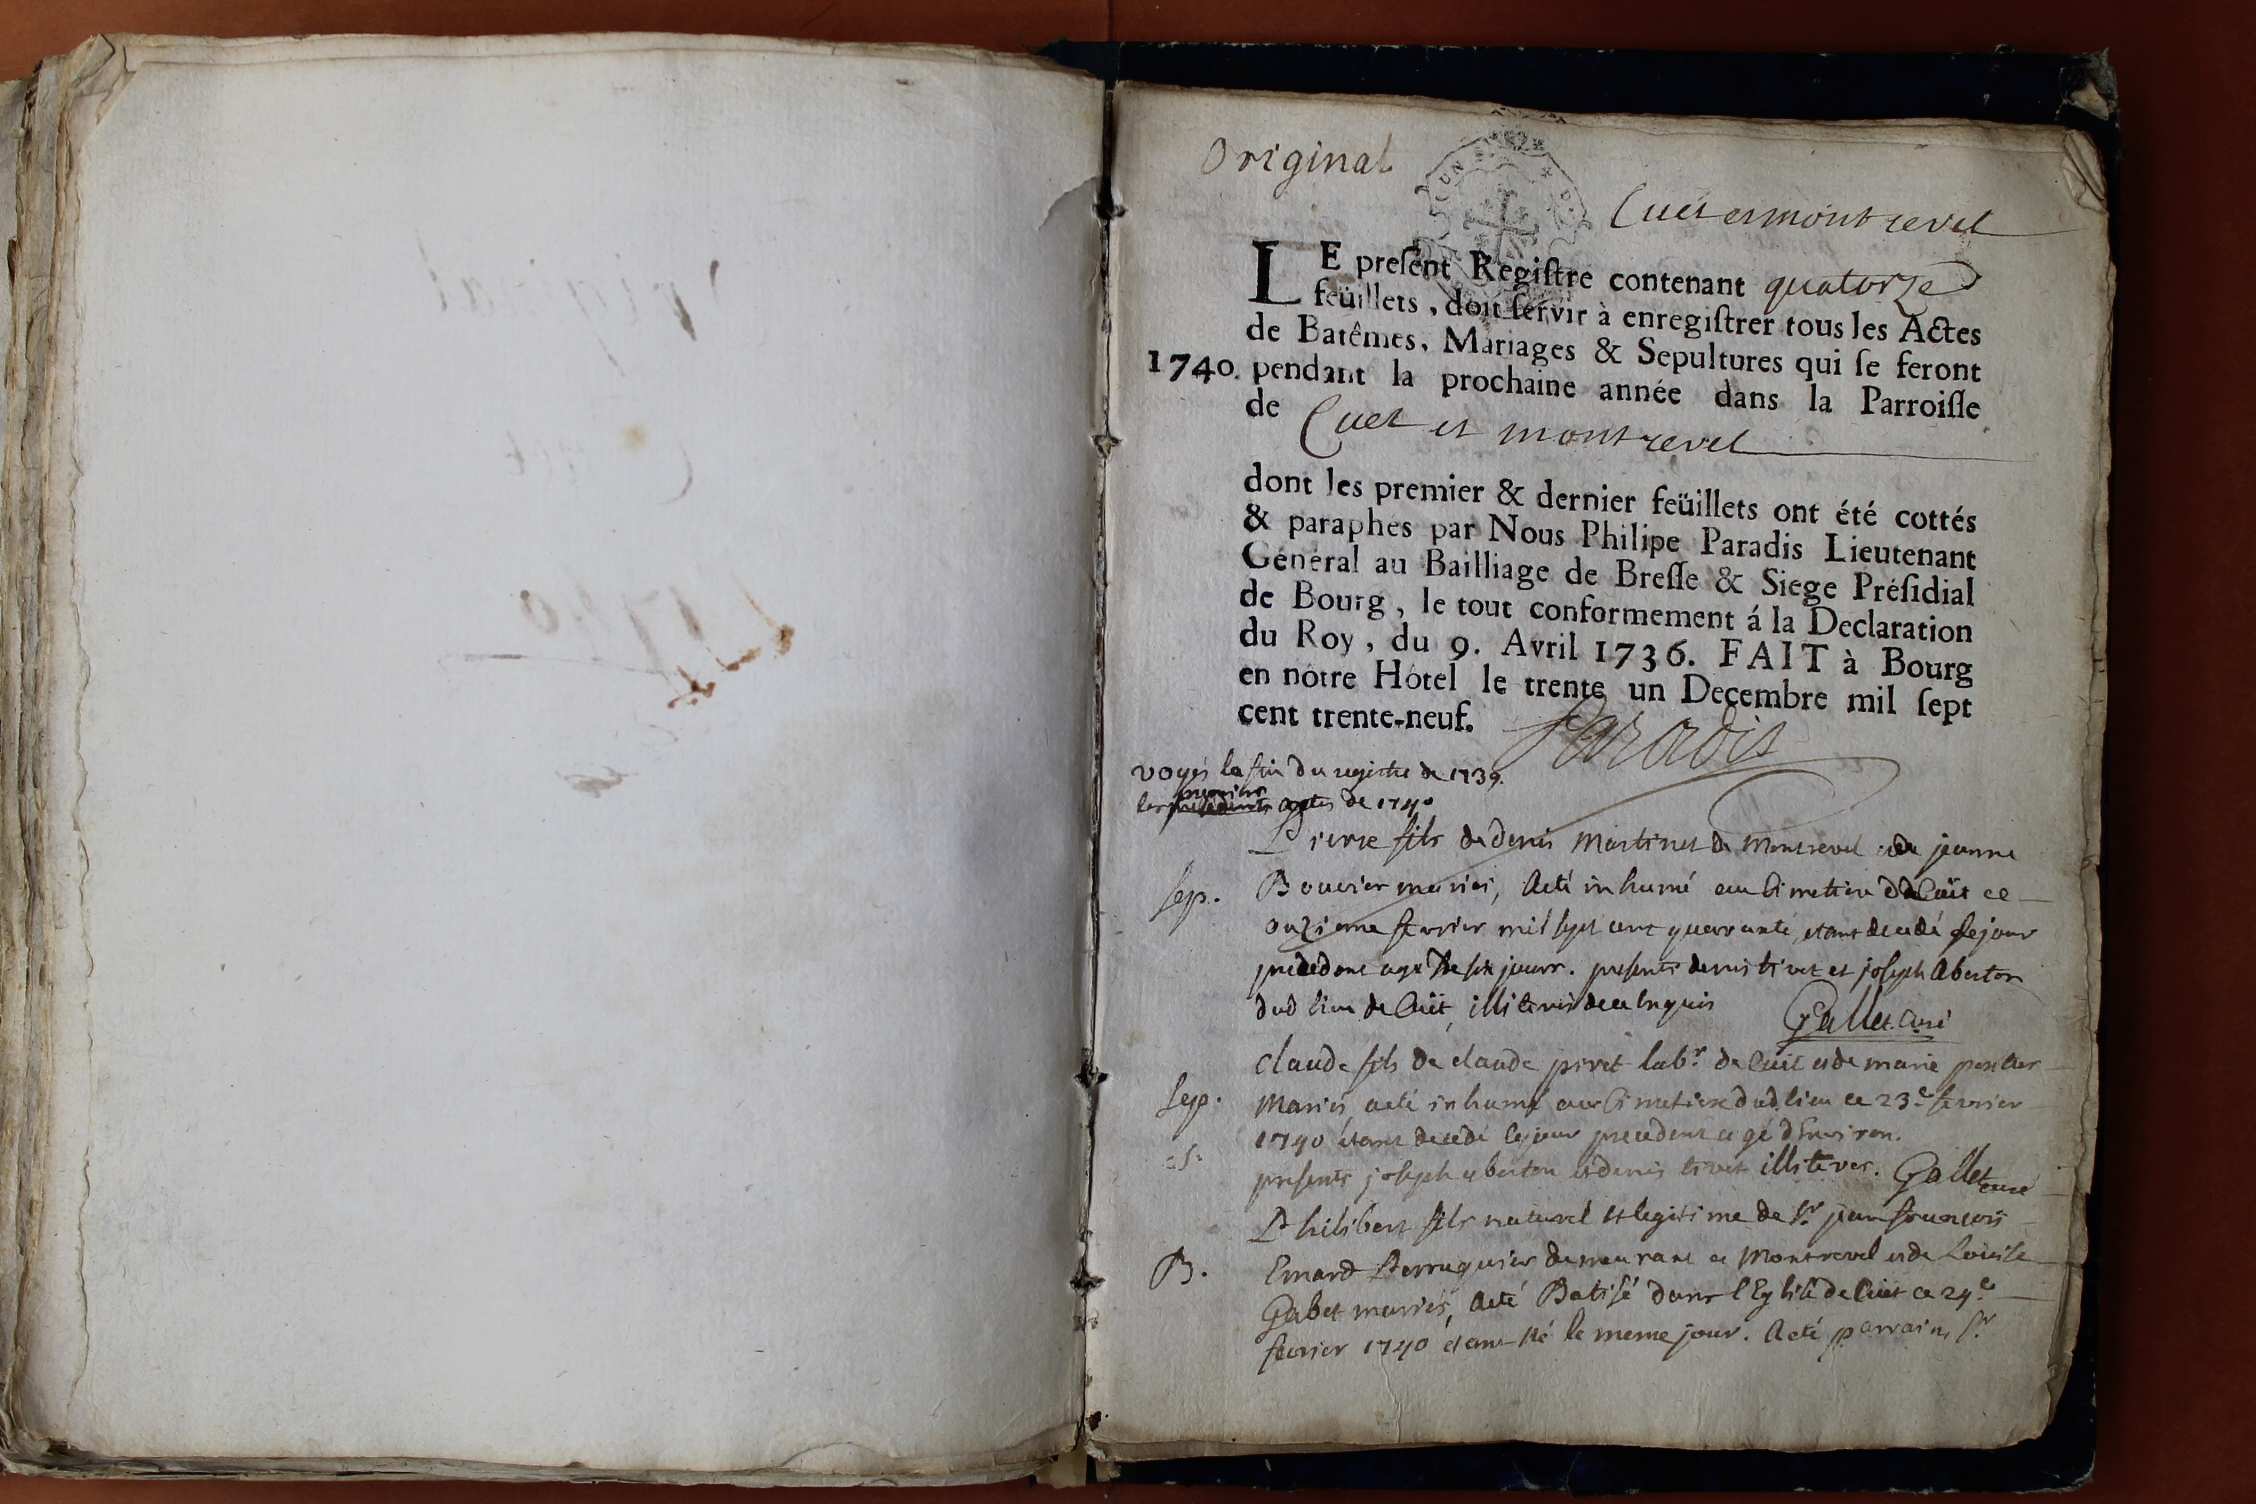 Original
Cuet et montrevel
LE preſent Regiſtre contenant quatorze
feüillets, doit ſervir à enregiſtrer tous les Actes
de Batêmes, Mariages & Sepultures qui ſe feront
1740. pendant la prochaine année dans la Parroiſſe
de Cuet et montrevel
dont les premier & dernier feüillets ont été cottés
& paraphés par Nous Philipe Paradis Lieutenant
Général au Bailliage de Breſſe & Siege Préſidial
de Bourg, le tout conformement á la Declaration
du Roy, du 9. Avril 1736. FAIT à Bourg
en nôtre Hôtel le trente un Decembre mil ſept
cent trente-neuf. Paradis
voyés la fin du registre de 1739.
les premiers actes de 1740
Pierre fils de denis Martinet de Montrevel et de jeanne
Sep. Bouvier mariés, a eté inhumé au Cimetiere de Cuët ce
onzieme fevrier mil sept cent quarrante, etant decedé le jour
precedent agé de six jours. presents denis tivet et joseph Aberton
dud lieu de Cuët, illiterés de ce Enquis
Gallet curé
Claude fils de claude pivet labr. de Cuët et de marie
Sep. Mariés, a eté inhumé au Cimetiere dud lieu ce 23e fevrier
1740 étant decedé le jour precedent agé d'Environ.
presents joseph aberton et denis tivet illiterés. Gallet curé
Philibert fils naturel et legitime de Sr jean françois
B. Emard Perruquier demeurant a Montrevel et de Louise
Gabet mariés, a eté Batisé dans l'Eglise de Cuët ce 24e
fevrier 1740 étant né le meme jour. A eté parrain Sr